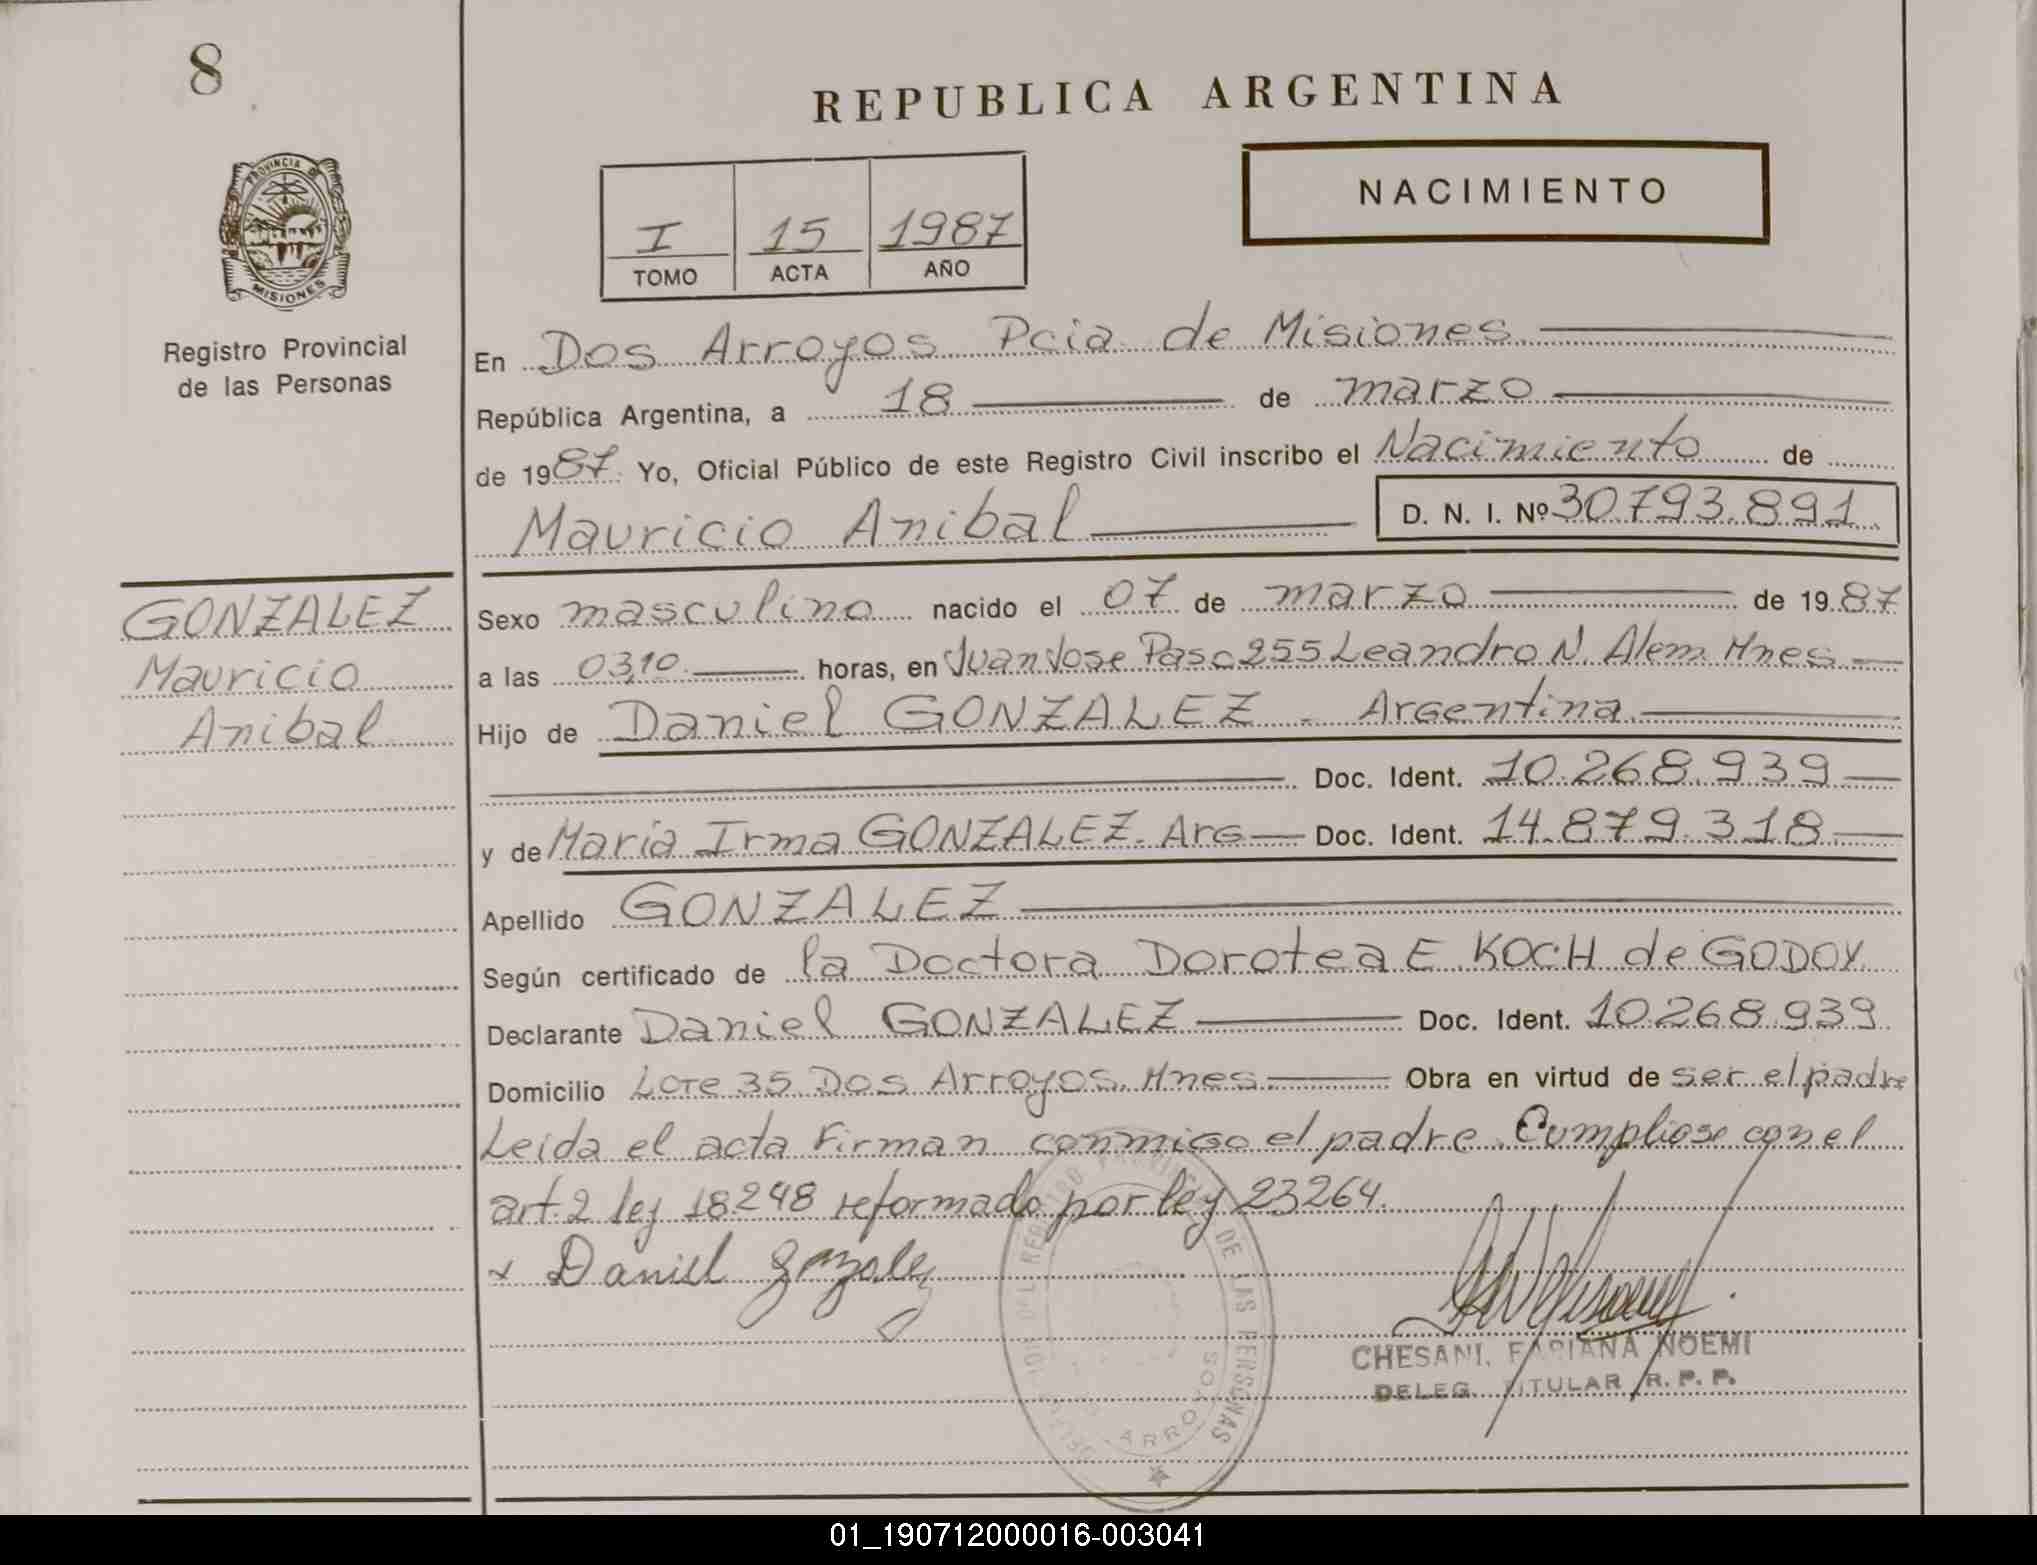 8
REPUBLICA ARGENTINA
PROVINCIA DE
MISIONES
Registro Provincial
de las Personas
I 15 1987
TOMO ACTA AÑO
NACIMIENTO
En Dos Arroyos Pcia de Misiones
República Argentina, a 18 de marzo
de 1987 Yo, Oficial Público de este Registro Civil inscribo el Nacimiento de
Mauricio Anibal D. N. I. Nº 30.793.891
GONZALEZ
Mauricio
Anibal
Sexo masculino nacido el 07 de marzo de 1987
a las 03,10 horas, en Juan Jose Paso 255 Leandro N. Alem Mnes
Hijo de Daniel GONZALEZ - Argentina
Doc. Ident. 10.268.939
y de Maria Irma GONZALEZ. Arg Doc. Ident. 14.879.318
Apellido GONZALEZ
Según certificado de la Doctora Dorotea E KOCH de GODOY
Declarante Daniel GONZALEZ Doc. Ident. 10.268.939
Domicilio Lote 35 Dos Arroyos. Mnes Obra en virtud de ser el padre
Leida el acta Firman conmigo el padre. Cumpliose con el
art. 2 ley 18248 reformado por ley 23264.
x Daniel Gonzalez
CHESANI, FABIANA NOEMI
DELEG. TITULAR R. P. P.
DE LAS PERSONAS
ARROYOS
01_190712000016-003041